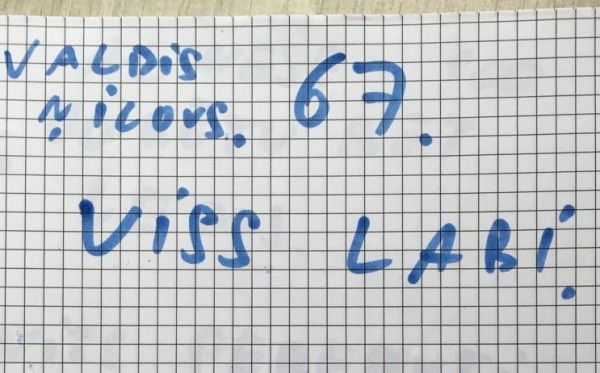 VALDiS
ņiLOVS. 67.
ViSS LABi.